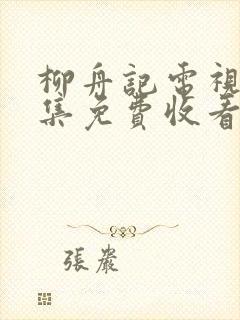 柳舟記電視
集免費收看
張嚴